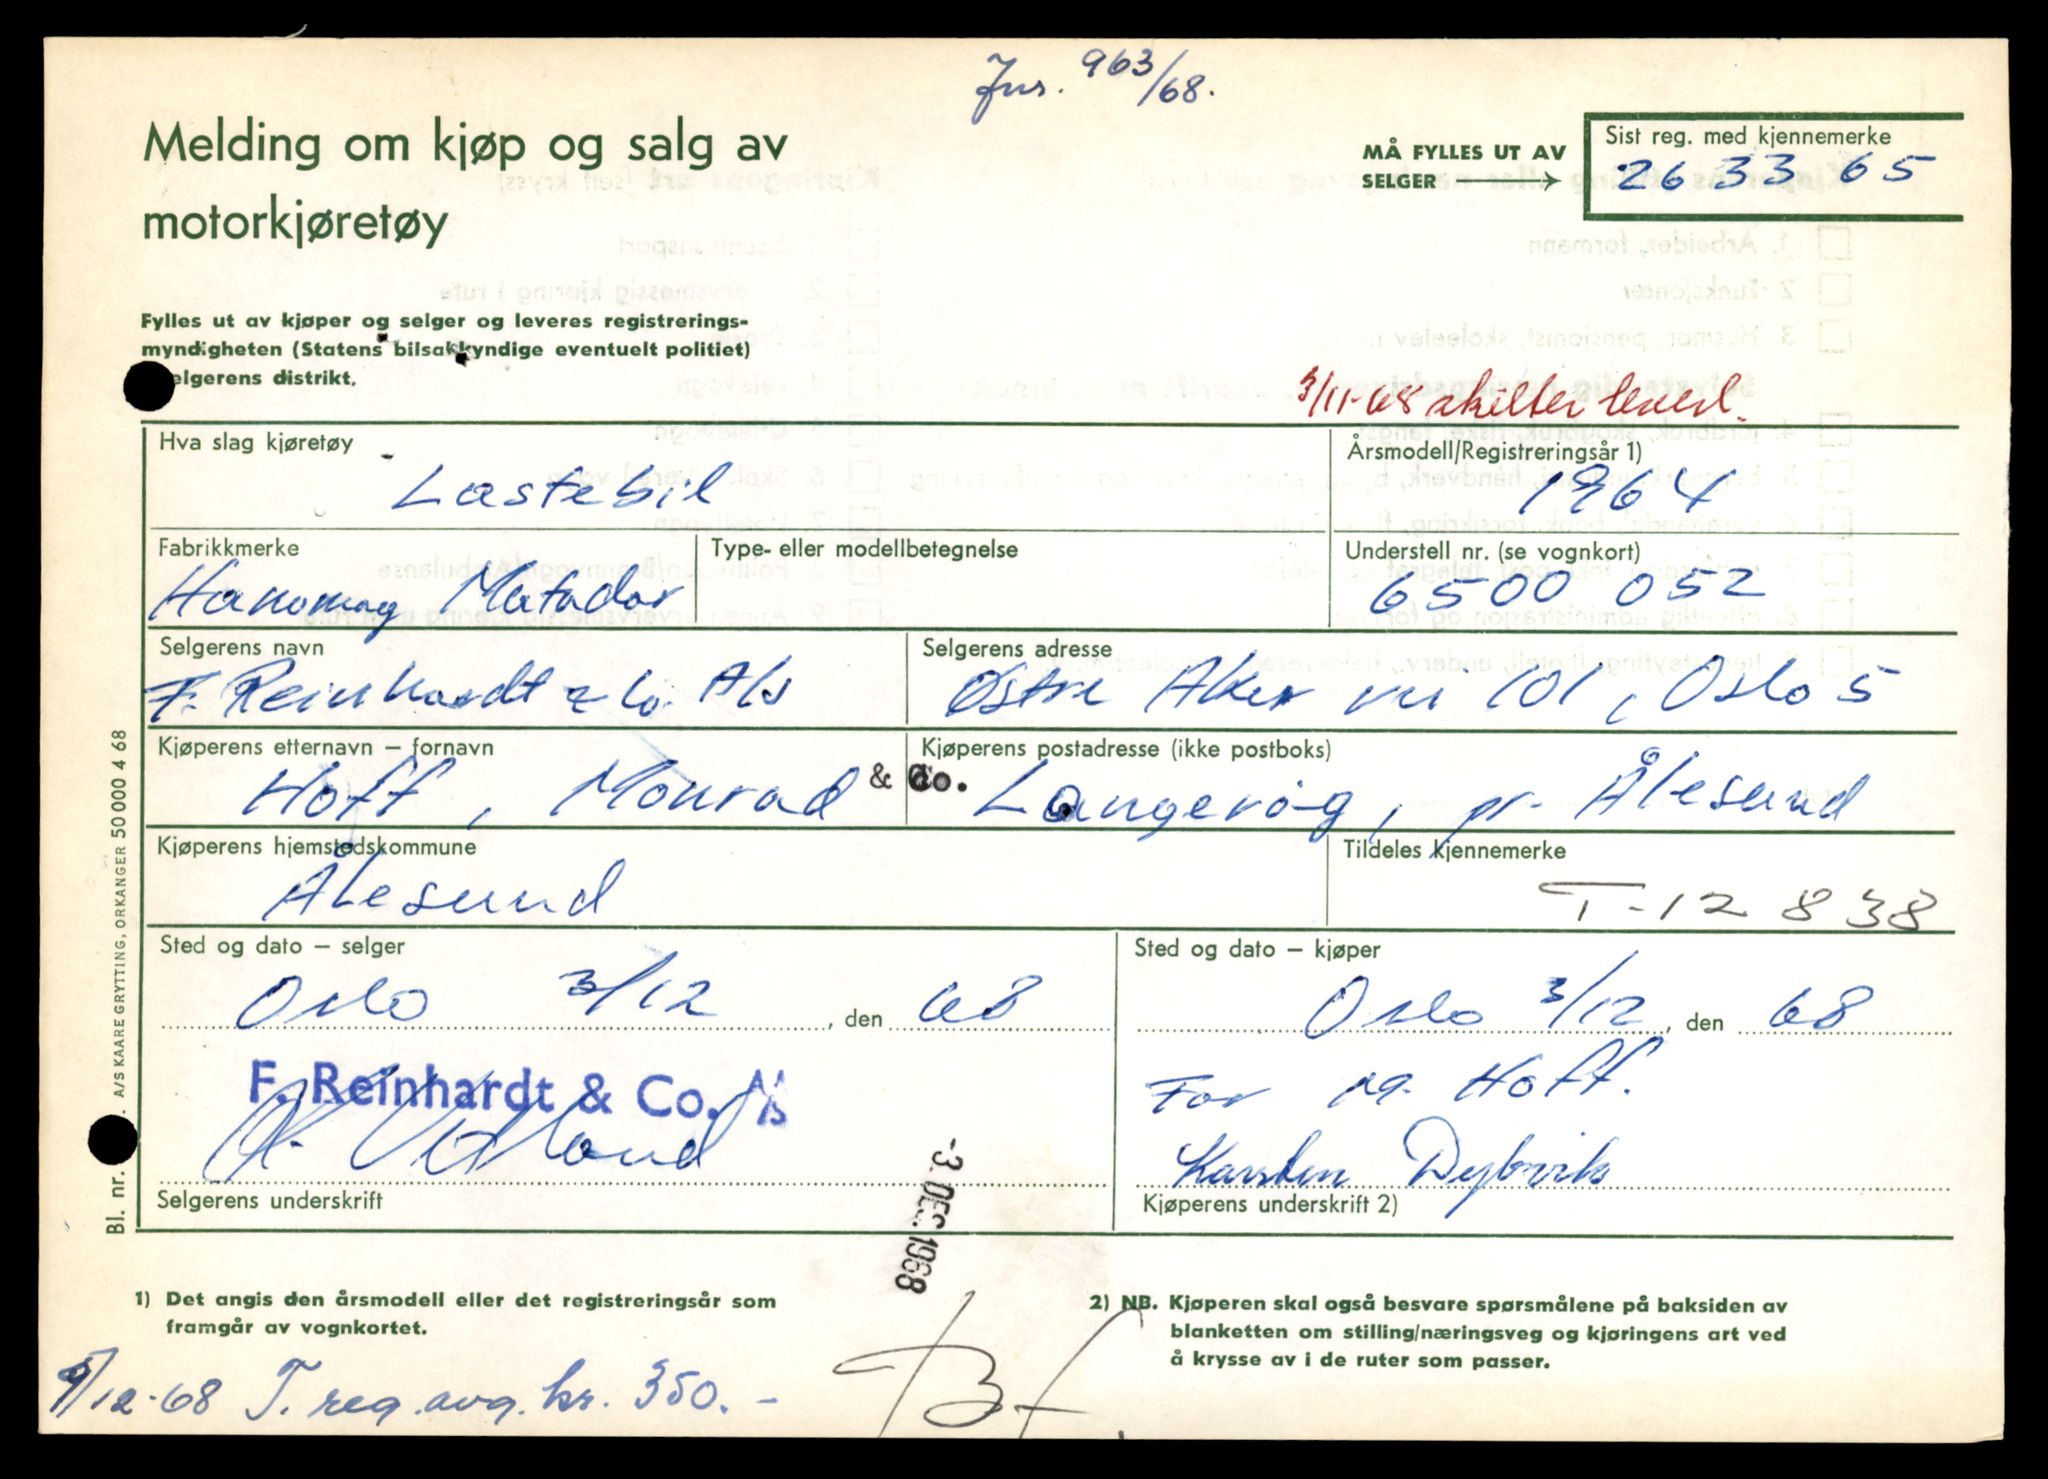 Jnr. 963/68.
Melding om kjøp og salg av
motorkjøretøy
MÅ FYLLES UT AV
SELGER
Sist reg. med kjennemerke
26 33 65
Fylles ut av kjøper og selger og leveres registrerings-
myndigheten (Statens bilsakkyndige eventuelt politiet)
elgerens distrikt.
3/11-68 skilter levert.
Hva slag kjøretøy
Lastebil
Årsmodell/Registreringsår 1)
1964
Fabrikkmerke
Hanomag Matador
Type- eller modellbetegnelse
Understell nr. (se vognkort)
6500 052
Selgerens navn
F. Reinhardt & Co. A/s
Selgerens adresse
Østre Aker vei 101, Oslo 5
Kjøperens etternavn – fornavn
Hoff, Monrad & Co.
Kjøperens postadresse (ikke postboks)
Langevåg, pr. Ålesund
Kjøperens hjemstedskommune
Ålesund
Tildeles kjennemerke
T-12 838
Sted og dato – selger
Oslo 3/12, den 68
Sted og dato – kjøper
Oslo 3/12, den 68
F. Reinhardt & Co. A/s
For M. Hoff.
Karsten Dybvik
Selgerens underskrift
Kjøperens underskrift 2)
-3. DEC. 1968
Bl. nr. . A/S KAARE GRYTTING, ORKANGER 50 000 4 68
1) Det angis den årsmodell eller det registreringsår som
framgår av vognkortet.
2) NB. Kjøperen skal også besvare spørsmålene på baksiden av
blanketten om stilling/næringsveg og kjøringens art ved
å krysse av i de ruter som passer.
9/12-68 T. reg. avg. kr. 350.-